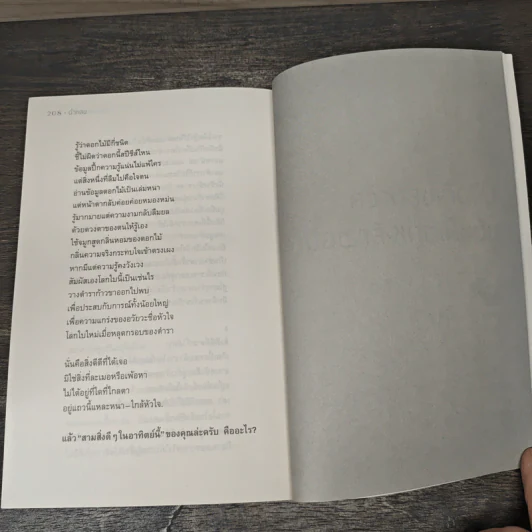 208 •
รู้ว่าดอกไม้มีกี่ชนิด
ชี้ไม่ผิดว่าดอกนี้สปีชีส์ไหน
ข้อมูลปึ้กความรู้แน่นไม่แพ้ใคร
แต่สิ่งหนึ่งที่ลืมไปคือใจตน
อ่านข้อมูลดอกไม้เป็นเล่มหนา
แต่หน้าตากลับค่อยค่อยหมองหม่น
รู้มากมายแต่ความงามกลับลืมยล
ด้วยดวงตาของตนให้รู้เอง
ใช้จมูกสูดกลิ่นหอมของดอกไม้
กลิ่นความจริงกระทบใจเข้าตรงเผง
หากมีแต่ความรู้คงวังเวง
สัมผัสเองโลกใบนี้เป็นเช่นไร
วางตำราก้าวขาออกไปพบ
เพื่อประสบกับการณ์ทั้งน้อยใหญ่
เพื่อความแกร่งของอวัยวะชื่อหัวใจ
โลกใบใหม่เมื่อหลุดกรอบของตำรา
นั่นคือสิ่งดีดีที่ได้เจอ
มิใช่สิ่งที่ละเมอหรือเพ้อหา
ไม่ได้อยู่ที่ใดที่ไกลตา
อยู่แถวนี้แหละหนา—ใกล้หัวใจ.
แล้ว “สามสิ่งดีๆ ในอาทิตย์นี้” ของคุณล่ะครับ คืออะไร?